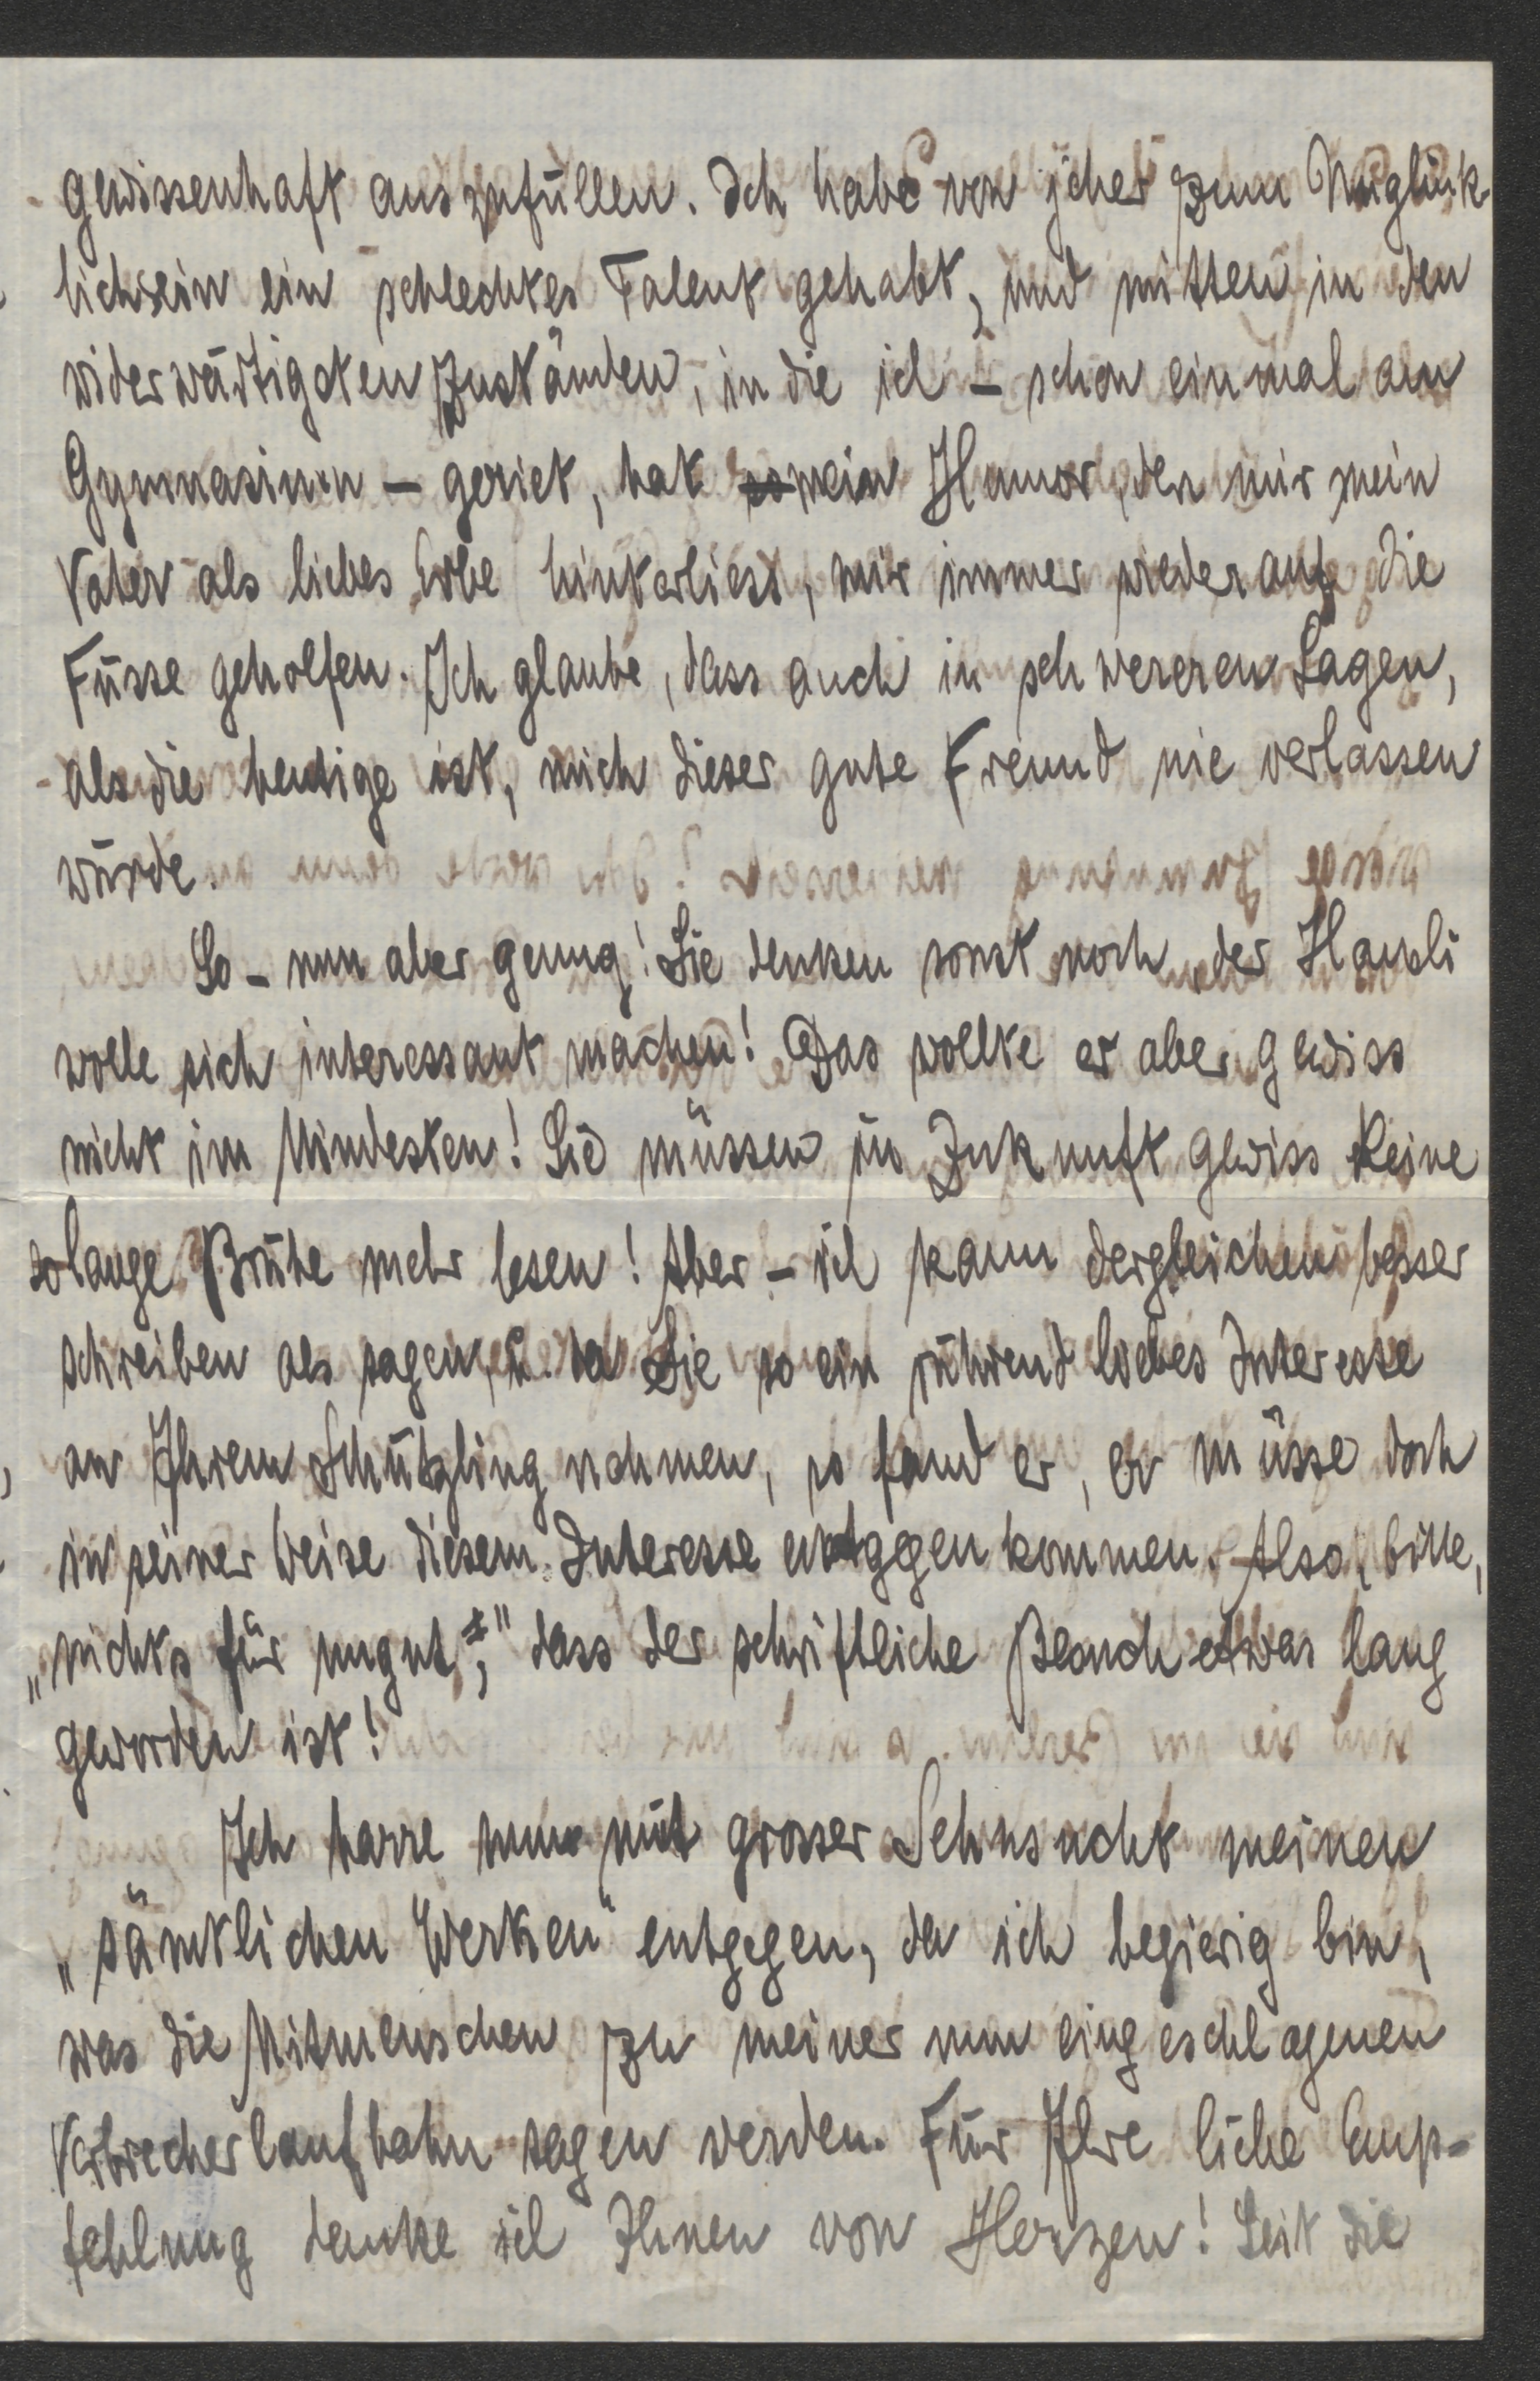 gewissenhaft auszufüllen. Ich habe von jeher zum Unglük-
lichsein ein schlechtes Talent gehabt, und mitten in den
widerwärtigsten Zuständen, in die ich – schon einmal am
Gymnasium – geriet, hat so mein Humor, den mir mein
Vater als liebes Erbe hinterliess, mir immer wieder auf die
Füsse geholfen. Ich glaube, dass auch in schwereren Lagen,
als die heutige ist, mich dieser gute Freund nie verlassen
würde.
So – nun aber genug! Sie denken sonst noch, der
wolle sich interessant machen! Das wollte er aber gewiss
nicht im Mindesten! Sie müssen in Zukunft gewiss keine
so lange Brühe mehr lesen! Aber – ich kann dergleichen besser
schreiben als sagen, u. da Sie so ein rührend liebes Interesse
an Ihrem Schützling nehmen, so fand er, er müsse doch
in seiner Weise diesem Interesse entgegen kommen. Also, bitte,
„nichts für ungut," dass der schriftliche Besuch etwas lang
geworden ist!
Ich harre nun mit grosser Sehnsucht meinen
„sämtlichen Werken" entgegen, da ich begierig bin,
was die Mitmenschen zu meiner nun eingeschlagenen
Verbrecherlaufbahn sagen werden. Für Ihre liebe Emp-
fehlung danke ich Ihnen von Herzen! Seit die